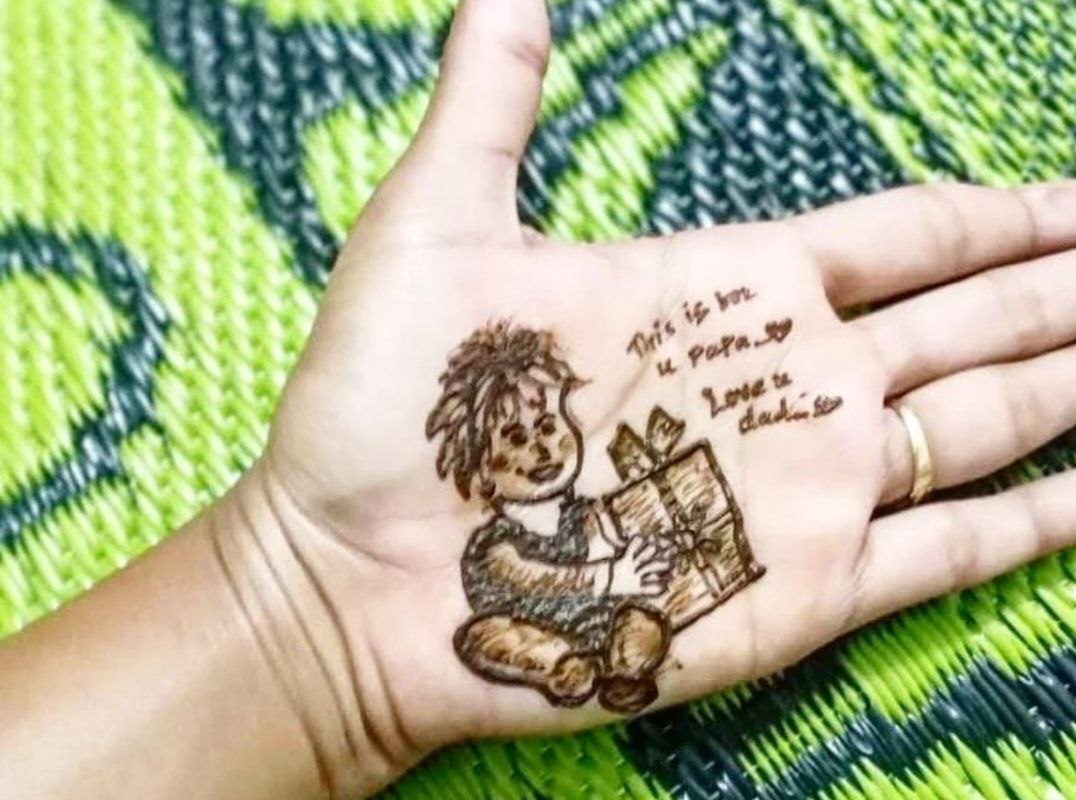 This is for
u papa
Love u
dad